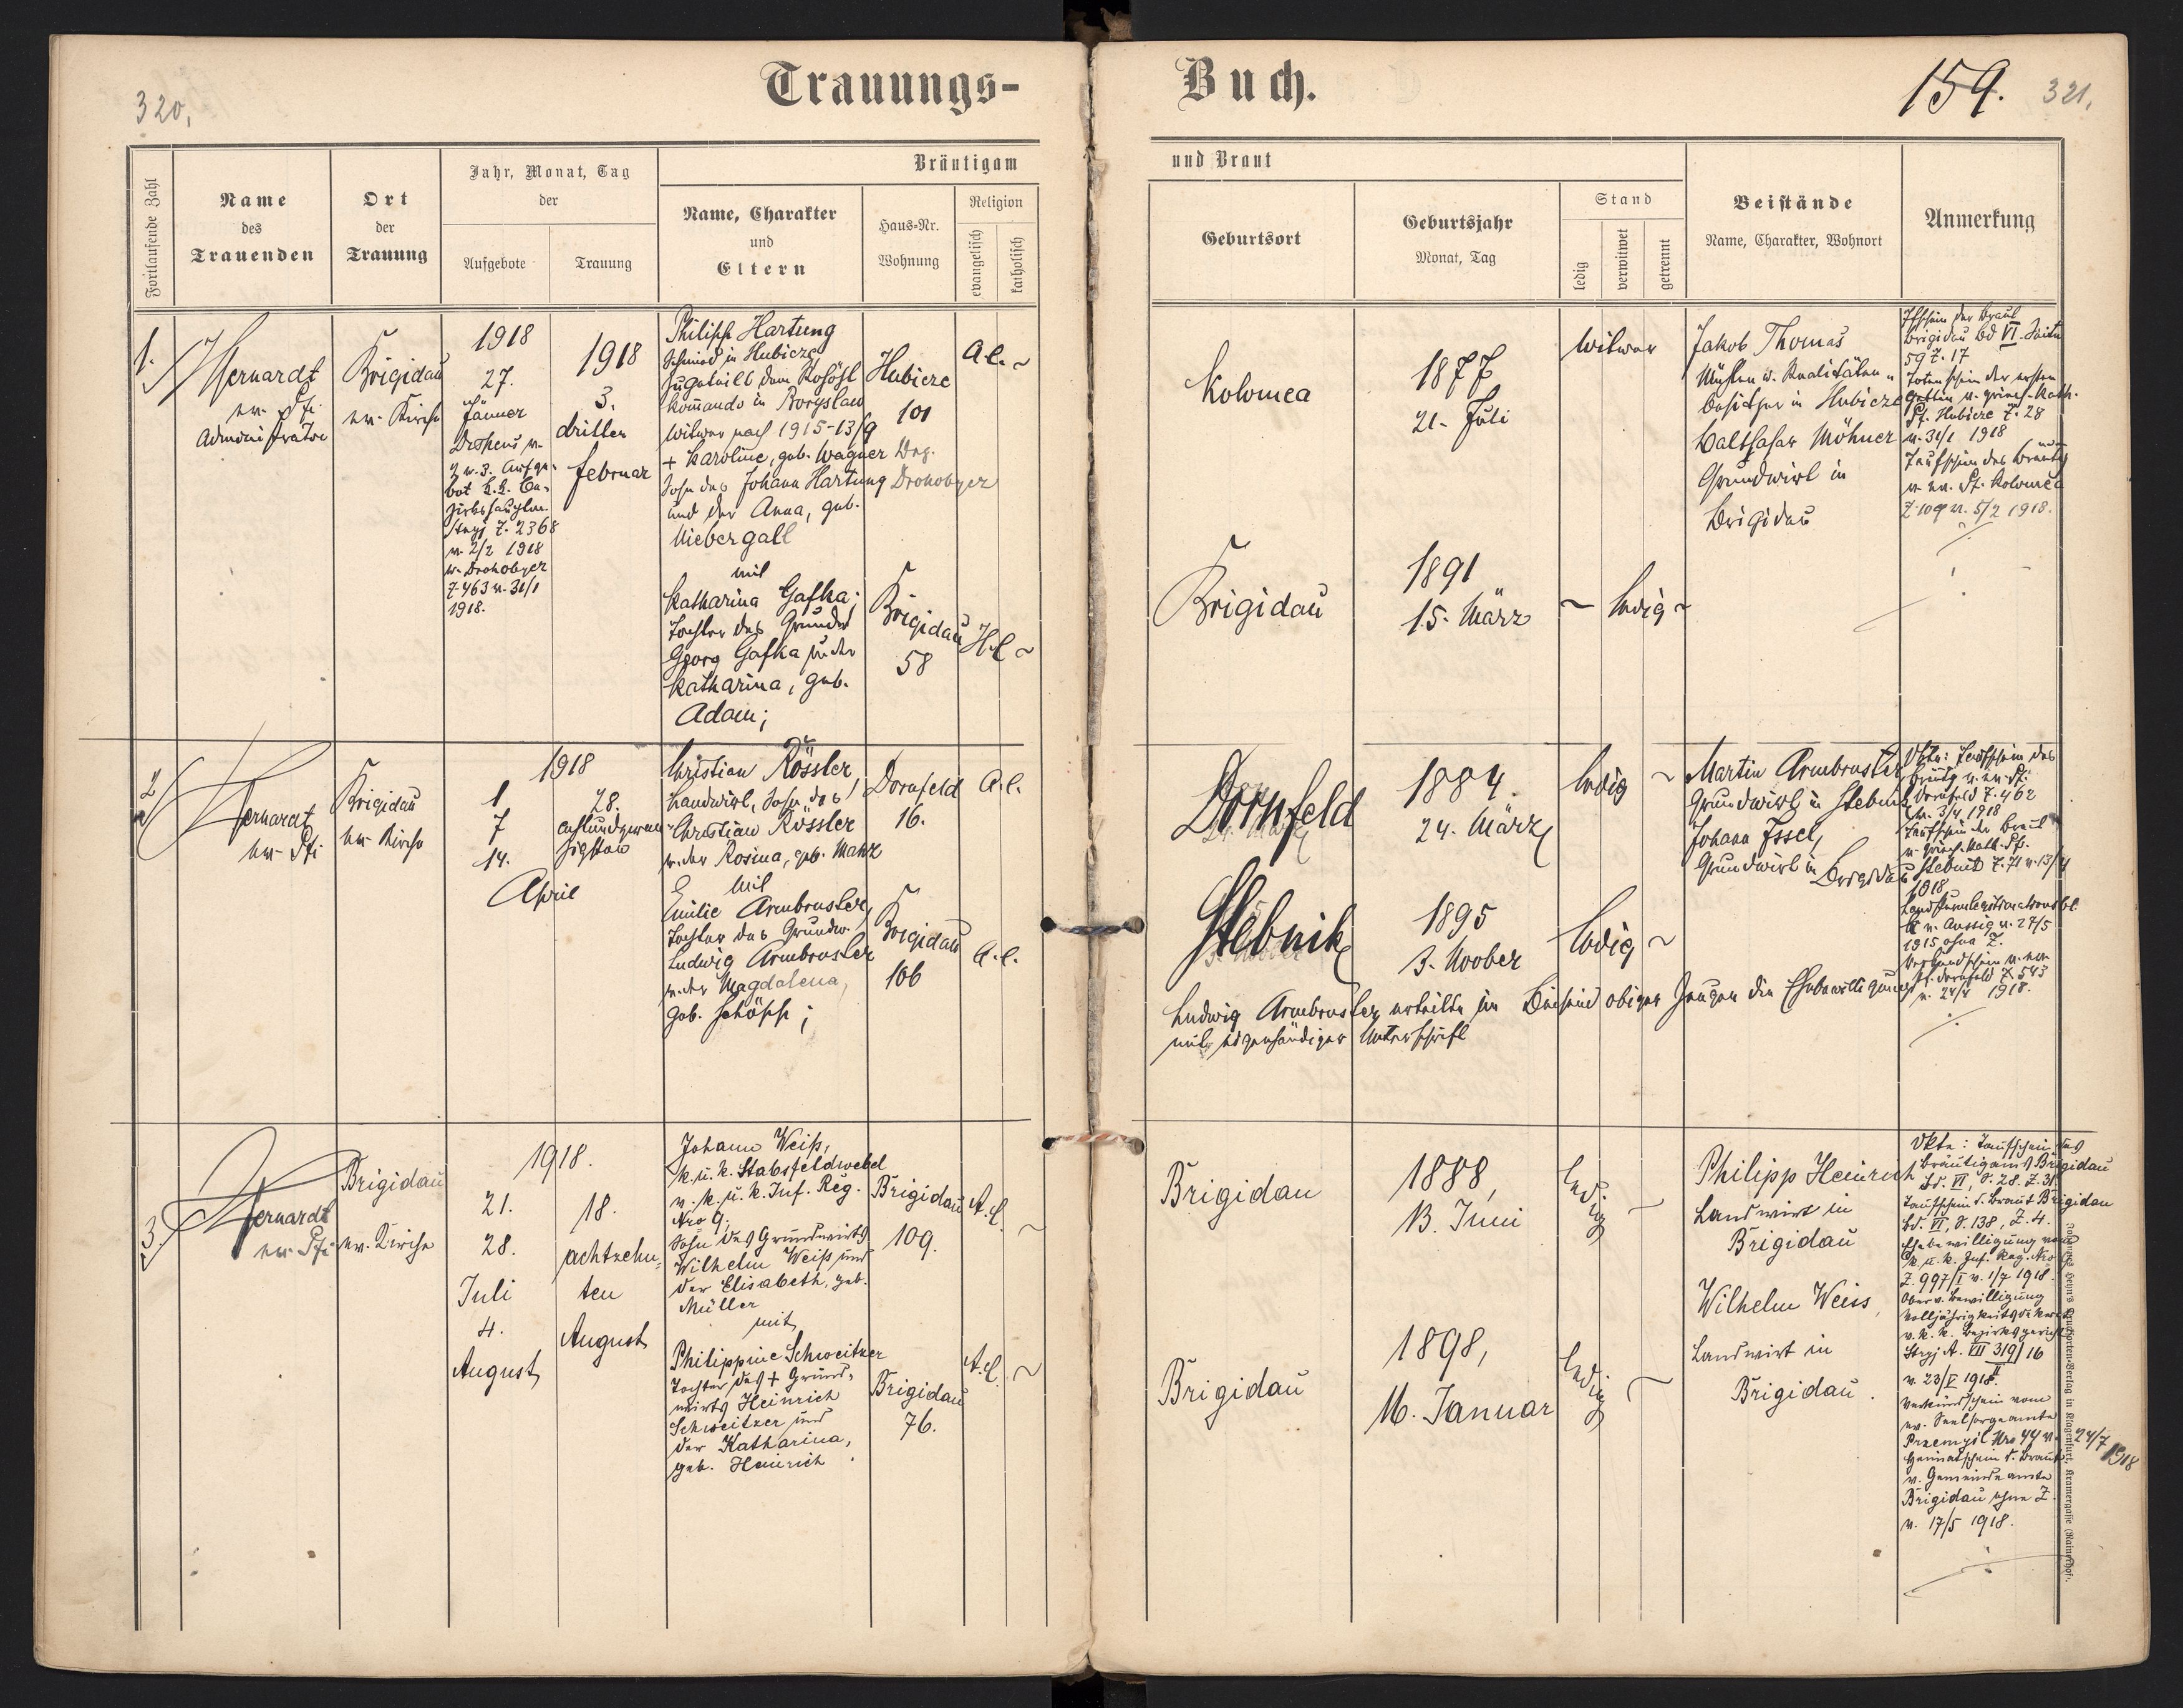 320,
Trauungs-
Buch.
159. 321,
Fortlaufende Zahl
Name
des
Trauenden
Ort
der
Trauung
Jahr, Monat, Tag
der
Aufgebote
Trauung
Bräutigam
Name, Charakter
und
Eltern
Haus-Nr.
Wohnung
Religion
evangelisch
katholisch
und Braut
Geburtsort
Geburtsjahr
Monat, Tag
Stand
ledig
verwitwet
getrennt
Beistände
Name, Charakter, Wohnort
Anmerkung
1.
ev. Pfr.
Administrator
Brigidau
ev. Kirche
1918
27.
Jänner
2 u. 3. Aufge-
bot k.k. Be-
zirkshauptm.
Stryj Z. 2368
v. 2/2 1918
u. Drohobycz
Z. 463 v. 31/1
1918.
1918
3.
dritten
Februar
Philipp Hartung
Schmied in Hubicze
zugeteilt dem
Kommando in Boryslaw
Witwer nach 1915-13/9
+ Karoline, geb. Wagner
Sohn des Johann Hartung
und der Anna, geb.
Niebergall
mit
Katharina Gafka;
Tochter des Grundw.
Georg Gafka u. der
Katharina, geb.
Adam;
Hubicze
101
Bez.
Drohobycz
Brigidau
58
A.C. ~
H.C. ~
Kolomea
1877
21. Juli
Witwer
Brigidau
1891
15. März
~ ledig ~
Jakob Thomas
Mühlen u. Realitäten-
besitzer in Hubicze
Balthasar Möhner
Grundwirt in
Brigidau
Tfschein der Braut
Brigidau Bd VI. Seite
59 Z. 17
Totenschein der ersten
Gattin v. griech.-kath.
Pf. Hubicze Z. 28
v. 31/1 1918
Taufschein des Bräutig
v. ev. Pf. Kolomea
Z. 109 v. 5/2 1918.
2
ev. Pfr
Brigidau
ev. Kirche
1918
1
7
14.
April
28.
achtundzwan-
zigsten
Christian Rössler,
Landwirt, Sohn des
Christian Rössler
u. der Rosina, geb. Manz
mit
Emilie Armbruster,
Tochter des Grundw.
Ludwig Armbruster
u. der Magdalena,
geb. Schöpp;
Dornfeld
16.
Brigidau
106
A.C.
A.C.
Dornfeld
1884.
24. März
ledig ~
Stebnik
1895
3. Nvober
ledig ~
Martin Armbruster
Grundwirt in Stebnik
Johann Issel,
Grundwirt in Brigidau
Taufschein des
Bräutg v. ev. Pf.
Dornfeld Z. 462
v. 3/4 1918
Taufschein der Braut
v. griech.-kath. Pf.
Stebnik Z. 71 v. 13/4
1918
Landsturmlegitimationsbl.
v. Aussig v. 27/5
1915 ohne Z.
Verkündschein v. ev.
Pf. Dornfeld Z. 543
v. 24/4 1918.
Ludwig Armbruster erteilte im Beisein obiger Zeugen die Ehebewilligung
mit eigenhändiger Unterschrift
3.
ev. Pfr
Brigidau
ev. Kirche
1918.
21.
28.
Juli
4.
August
18.
achtzehn-
ten
August
Johann Weiß,
k. u. k. Stabsfeldwebel
v. k. u. k. Inf. Reg.
Nro 9,
Sohn des Grundwirts
Wilhelm Weiß und
der Elisabeth, geb.
Müller
mit
Philippine Schweitzer
Tochter des + Grund-
wirts Heinrich
Schweitzer und
der Katharina,
geb. Heinrich.
Brigidau
109.
Brigidau
76.
A.C. ~
A.C. ~
Brigidau
1888,
13. Juni
ledig ~
Brigidau
1898,
16. Januar
ledig ~
Philipp Heinrich
Landwirt in
Brigidau
Wilhelm Weiss,
Landwirt in
Brigidau.
Vkte: Taufschein des
Bräutigams Brigidau
Bd. VI, S. 28. Z. 31.
Taufschein d. Braut Brigidau
Bd. VI, S. 138, Z. 4.
Ehebewilligung vom
k. u. k. Inf. Reg. Nro
Z. 997/I v. 1/7 1918.
Oberv. Bewilligung
v. k. k. Bezirksgericht
Stryj A. VII 319/16
v. 23/V 1918.
Verkündschein vom
ev. Seelsorgeamte
Przemysl Nro 44 v. 24/7 1918
Heimatschein d. Braut
v. Gemeindeamte
Brigidau ohne Z.
v. 17/5 1918.
Johannes Heyn's Drucksorten-Verlag in Klagenfurt, Kramergasse (Rainerhof).